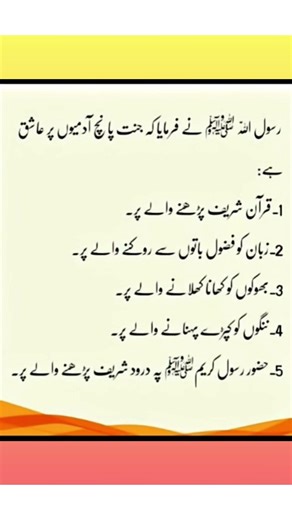 رسول اللہ ﷺ نے فرمایا کہ جنت پانچ آدمیوں پر عاشق
ہے:
1-قرآن شریف پڑھنے والے پر۔
2-زبان کو فضول باتوں سے روکنے والے پر۔
3-بھوکوں کو کھانا کھلانے والے پر۔
4-ننگوں کو کپڑے پہنانے والے پر۔
5-حضور رسول کریم ﷺ پہ درود شریف پڑھنے والے پر۔